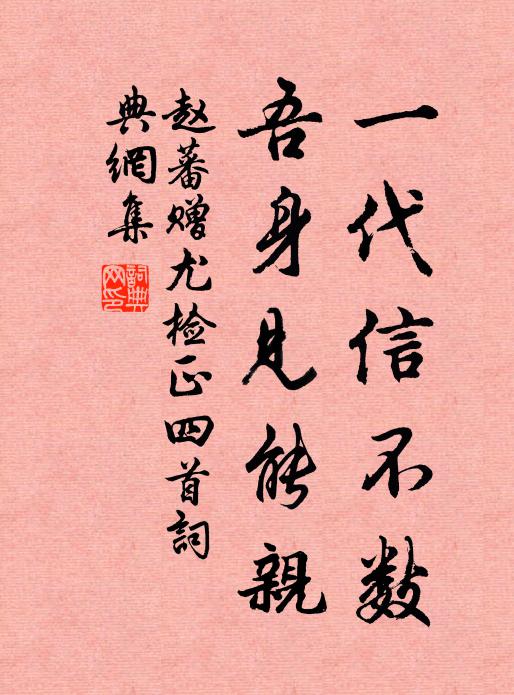 一代信不数
吾身见能親
赵蕃赠尤检正四首詞
典網集
詞典網印